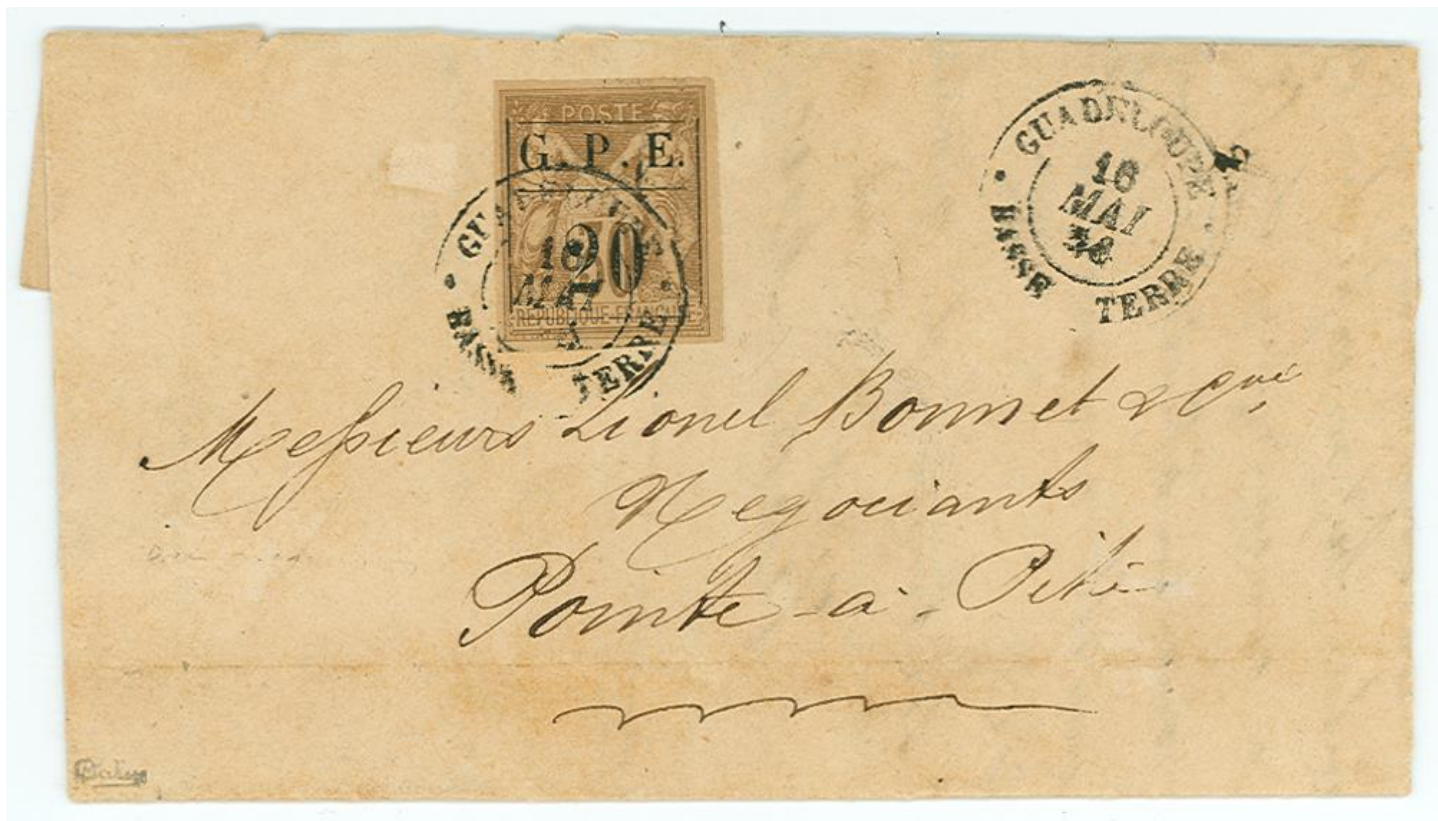 POSTE
G. P. E.
20
30
REPUBLIQUE FRANÇAISE
GUADELOUPE
16
MAI
BASSE TERRE
GUADELOUPE
16
MAI
BASSE TERRE
Messieurs Lionel Bonnet & Cie
Negociants
Pointe-à-Pitre